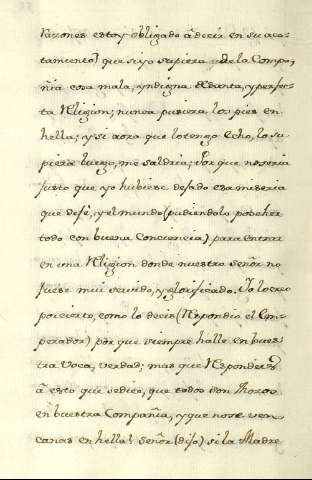 Razones estoy obligado á decir en su aca-
tamiento) que si yo supiera de la Compa-
ñia cosa mala, yndigna de santa, y perfec-
ta Religion; nunca pusiera los pies en
hella; y si aora que lo tengo echo, lo su-
piera luego, me saldria; Por que no seria
justo que yo hubiese dejado esa miseria
que dejé, y el mundo (pudiendolo poseher
todo con buena Conciencia) para entrar
en una Religion donde nuestro señor no
fuese mui servido, y glorificado. Yo lo creo
por cierto, como lo decis (Respondio el Em-
perador) por que siempre hallé en bues-
tra voca, verdad; mas que Responderes
á esto que se dice, que todos son Mozos
en buestra Compañia, y que no se ven
canas en hella? Señor (dijo) si la Madre